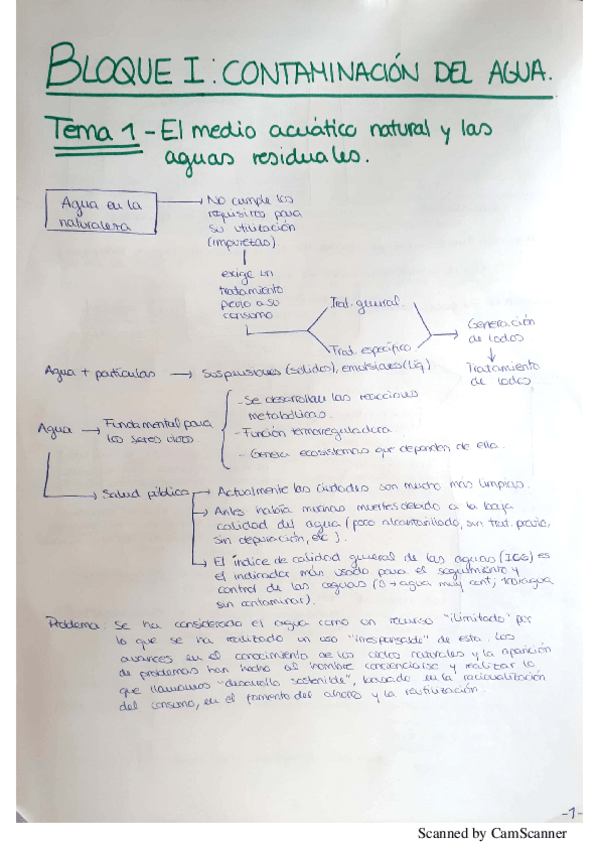 BLOQUE I: CONTAMINACIÓN DEL AGUA.
Tema 1 - El medio acuático natural y las
aguas residuales.
Agua en la
naturaleza
No cumple los
requisitos para
su utilización
(impurezas)
exige un
tratamiento
previo a su
consumo
Trat. general
Trat. específico
Generación
de lodos
Tratamiento
de lodos
Agua + partículas → Suspensiones (sólidos), emulsiones (líq)
Agua → Fundamental para
los seres vivos
- Se desarrollan las reacciones
metabólicas.
- Función termorreguladora.
- Genera ecosistemas que dependen de ella.
Salud pública → Actualmente las ciudades son mucho más limpias.
→ Antes había muchas muertes debido a la baja
calidad del agua (poco alcantarillado, sin trat. previo,
sin depuración, etc).
→ El índice de calidad general de las aguas (ICG) es
el indicador más usado para el seguimiento y
control de las aguas (0 → agua muy cont; 100 → agua
sin contaminar).
Problema: Se ha considerado el agua como un recurso "ilimitado" por
lo que se ha realizado un uso "irresponsable" de esta. Los
avances en el conocimiento de los ciclos naturales y la aparición
de problemas han hecho al hombre concienciarse y realizar lo
que llamamos "desarrollo sostenible", basado en la racionalización
del consumo, en el fomento del ahorro y la reutilización.
-1-
Scanned by CamScanner